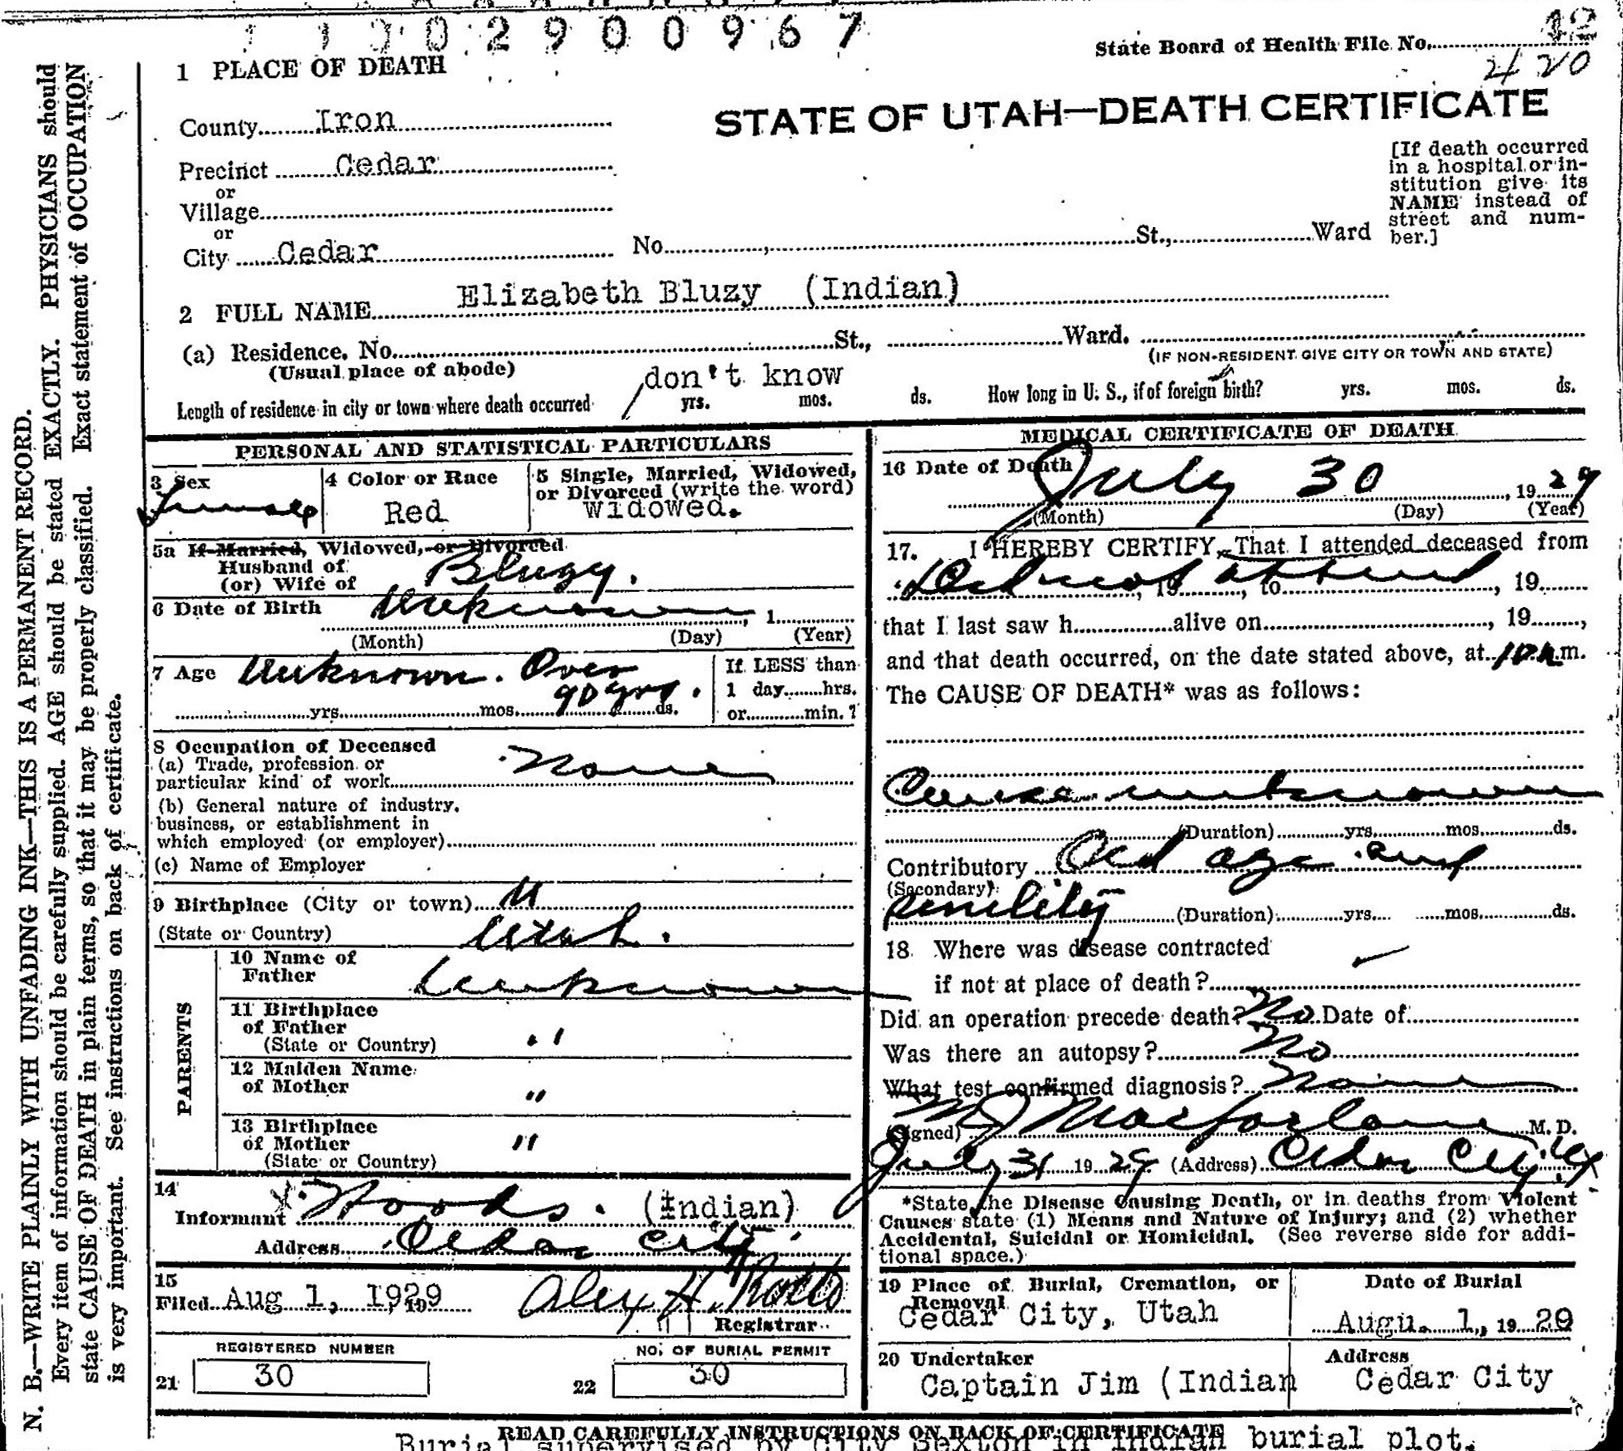 1 1 0 0 2 9 0 0 9 6 7
State Board of Health File No. 12
420
1 PLACE OF DEATH
STATE OF UTAH—DEATH CERTIFICATE
County Iron
Precinct Cedar
or
Village
or
City Cedar No. St., Ward
[If death occurred
in a hospital or in-
stitution give its
NAME instead of
street and num-
ber.]
2 FULL NAME Elizabeth Bluzy (Indian)
(a) Residence. No. St., Ward.
(Usual place of abode) (IF NON-RESIDENT GIVE CITY OR TOWN AND STATE)
don't know
Length of residence in city or town where death occurred yrs. mos. ds. How long in U. S., if of foreign birth? yrs. mos. ds.
PERSONAL AND STATISTICAL PARTICULARS
3 Sex Female
4 Color or Race Red
5 Single, Married, Widowed,
or Divorced (write the word)
Widowed.
5a If Married, Widowed, or Divorced
Husband of
(or) Wife of Bluzy.
6 Date of Birth Unknown, 1
(Month) (Day) (Year)
7 Age Unknown. Over
90 yrs.
yrs. mos. ds.
If LESS than
1 day hrs.
or min.?
8 Occupation of Deceased
(a) Trade, profession or
particular kind of work None
(b) General nature of industry,
business, or establishment in
which employed (or employer)
(c) Name of Employer
9 Birthplace (City or town) U
(State or Country) Utah.
PARENTS
10 Name of
Father Unknown
11 Birthplace
of Father
(State or Country) "
12 Maiden Name
of Mother "
13 Birthplace
of Mother "
(State or Country)
14
Informant X Woods. (Indian)
Address Cedar City
15
Filed Aug 1, 1929 19
Registrar
REGISTERED NUMBER
21 30
NO. OF BURIAL PERMIT
22 30
MEDICAL CERTIFICATE OF DEATH
16 Date of Death July 30, 1929
(Month) (Day) (Year)
17. I HEREBY CERTIFY, That I attended deceased from
Did not attend, 19, to, 19
that I last saw h alive on, 19,
and that death occurred, on the date stated above, at 10 a.m.
The CAUSE OF DEATH* was as follows:
Cause unknown
(Duration) yrs. mos. ds.
Contributory Old age and
(Secondary)
senility (Duration) yrs. mos. ds.
18. Where was disease contracted
if not at place of death?
Did an operation precede death? No Date of
Was there an autopsy? No
What test confirmed diagnosis? None
(Signed) M J Macfarlane M. D.
July 31 1929 (Address) Cedar City, Ut
*State the Disease Causing Death, or in deaths from Violent
Causes state (1) Means and Nature of Injury; and (2) whether
Accidental, Suicidal or Homicidal. (See reverse side for addi-
tional space.)
19 Place of Burial, Cremation, or
Removal
Cedar City, Utah
Date of Burial
Augu. 1, 1929
20 Undertaker
Captain Jim (Indian
Address
Cedar City
READ CAREFULLY INSTRUCTIONS ON BACK OF CERTIFICATE
Burial supervised by City Sexton in Indian burial plot.
N. B.—WRITE PLAINLY WITH UNFADING INK—THIS IS A PERMANENT RECORD.
Every item of information should be carefully supplied. AGE should be stated EXACTLY. PHYSICIANS should
state CAUSE OF DEATH in plain terms, so that it may be properly classified. Exact statement of OCCUPATION
is very important. See instructions on back of certificate.